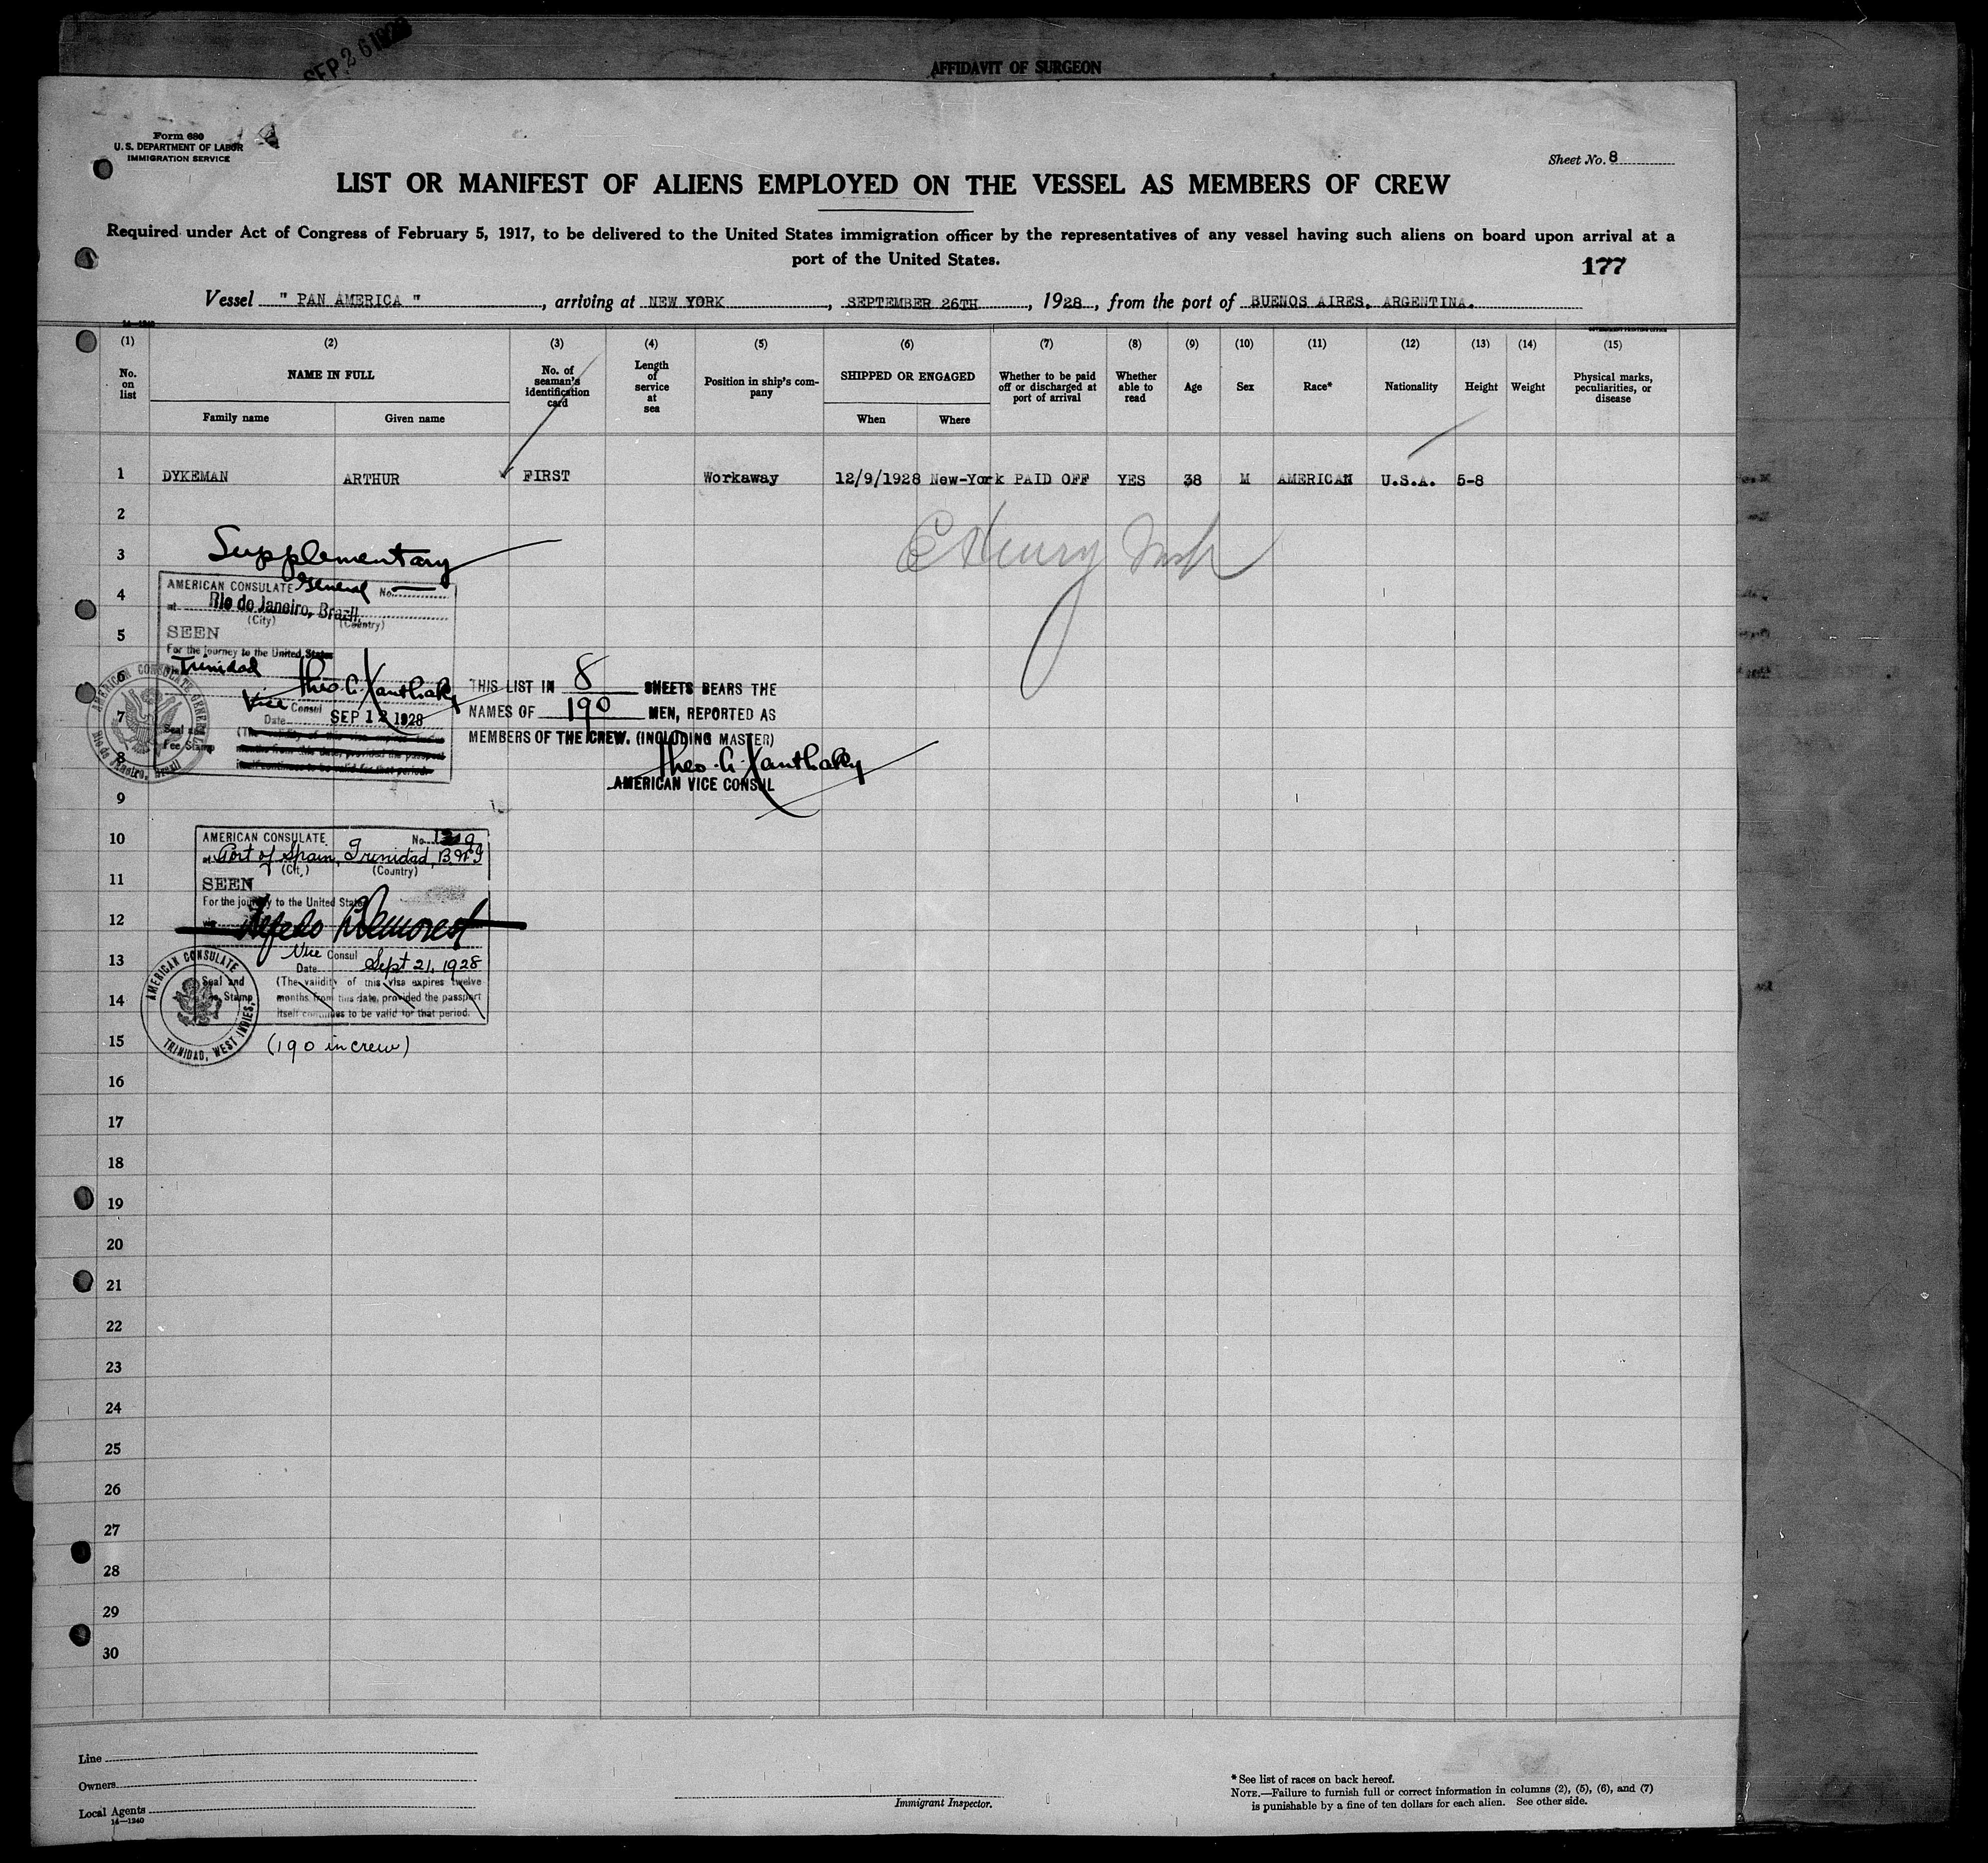 SEP 26 1928
AFFIDAVIT OF SURGEON
Form 680
U. S. DEPARTMENT OF LABOR
IMMIGRATION SERVICE
Sheet No. 8
LIST OR MANIFEST OF ALIENS EMPLOYED ON THE VESSEL AS MEMBERS OF CREW
Required under Act of Congress of February 5, 1917, to be delivered to the United States immigration officer by the representatives of any vessel having such aliens on board upon arrival at a
port of the United States.
177
Vessel " PAN AMERICA ", arriving at NEW YORK, SEPTEMBER 26TH, 1928, from the port of BUENOS AIRES, ARGENTINA.
14—1240
GOVERNMENT PRINTING OFFICE
(1) (2) (3) (4) (5) (6) (7) (8) (9) (10) (11) (12) (13) (14) (15)
No. on list
NAME IN FULL
Family name
Given name
No. of seaman's identification card
Length of service at sea
Position in ship's company
SHIPPED OR ENGAGED
When
Where
Whether to be paid off or discharged at port of arrival
Whether able to read
Age
Sex
Race*
Nationality
Height
Weight
Physical marks, peculiarities, or disease
1 DYKEMAN ARTHUR FIRST Workaway 12/9/1928 New-York PAID OFF YES 38 M AMERICAN U.S.A. 5-8
2
3
Supplementary
4
AMERICAN CONSULATE General No.
at Rio de Janeiro, Brazil.
(City) (Country)
5
SEEN
For the journey to the United States
6
Trinidad
Theo. A. Xanthaky
7
Vice Consul
Date SEP 12 1928
Seal and
Fee Stamp
(The validity of this visa expires twelve
months from this date, provided the passport
itself continues to be valid for that period.
8
AMERICAN CONSULATE GENERAL
Rio de Janeiro, Brazil
THIS LIST IN 8 SHEETS BEARS THE
NAMES OF 190 MEN, REPORTED AS
MEMBERS OF THE CREW. (INCLUDING MASTER)
Theo. A. Xanthaky
AMERICAN VICE CONSUL
9
10
AMERICAN CONSULATE No.
at Port of Spain, Trinidad, B.W.I
(City) (Country)
11
SEEN
For the journey to the United States
12
via
13
Vice Consul
Date Sept 21, 1928
14
Seal and
Fee Stamp
(The validity of this visa expires twelve
months from this date, provided the passport
itself continues to be valid for that period.
AMERICAN CONSULATE
TRINIDAD, WEST INDIES,
15
(190 in crew)
16
17
18
19
20
21
22
23
24
25
26
27
28
29
30
Line
Owners
Local Agents
14—1240
Immigrant Inspector.
* See list of races on back hereof.
NOTE.—Failure to furnish full or correct information in columns (2), (5), (6), and (7)
is punishable by a fine of ten dollars for each alien. See other side.